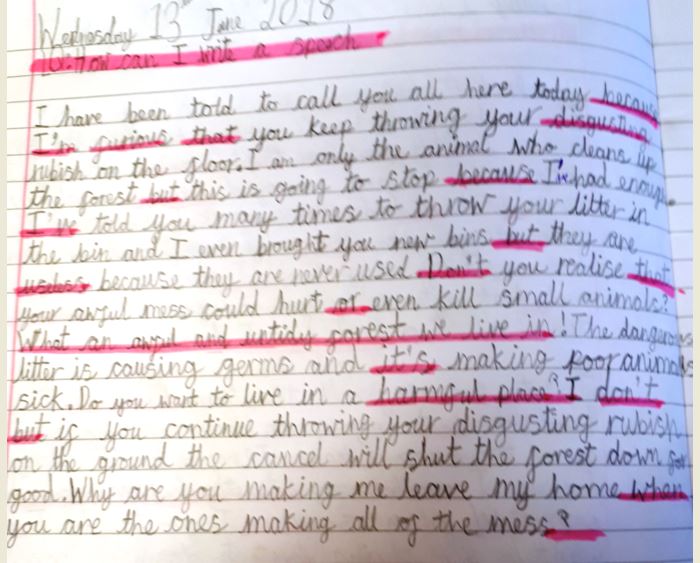 Wednesday 13th June 2018
LO: How can I write a speech
I have been told to call you all here today because
I'm furious that you keep throwing your disgusting
rubish on the floor. I am only the animal who cleans up
the forest but this is going to stop because I've had enough.
I've told you many times to throw your litter in
the bin and I even brought you new bins but they are
useless because they are never used Don't you realise that
your awful mess could hurt or even kill small animals?
What an awful and untidy forest we live in! The dangerous
litter is causing germs and it's making poor animals
sick. Do you want to live in a harmful place? I don't
but if you continue throwing your disgusting rubish
on the ground the cancel will shut the forest down for
good. Why are you making me leave my home when
you are the ones making all of the mess?